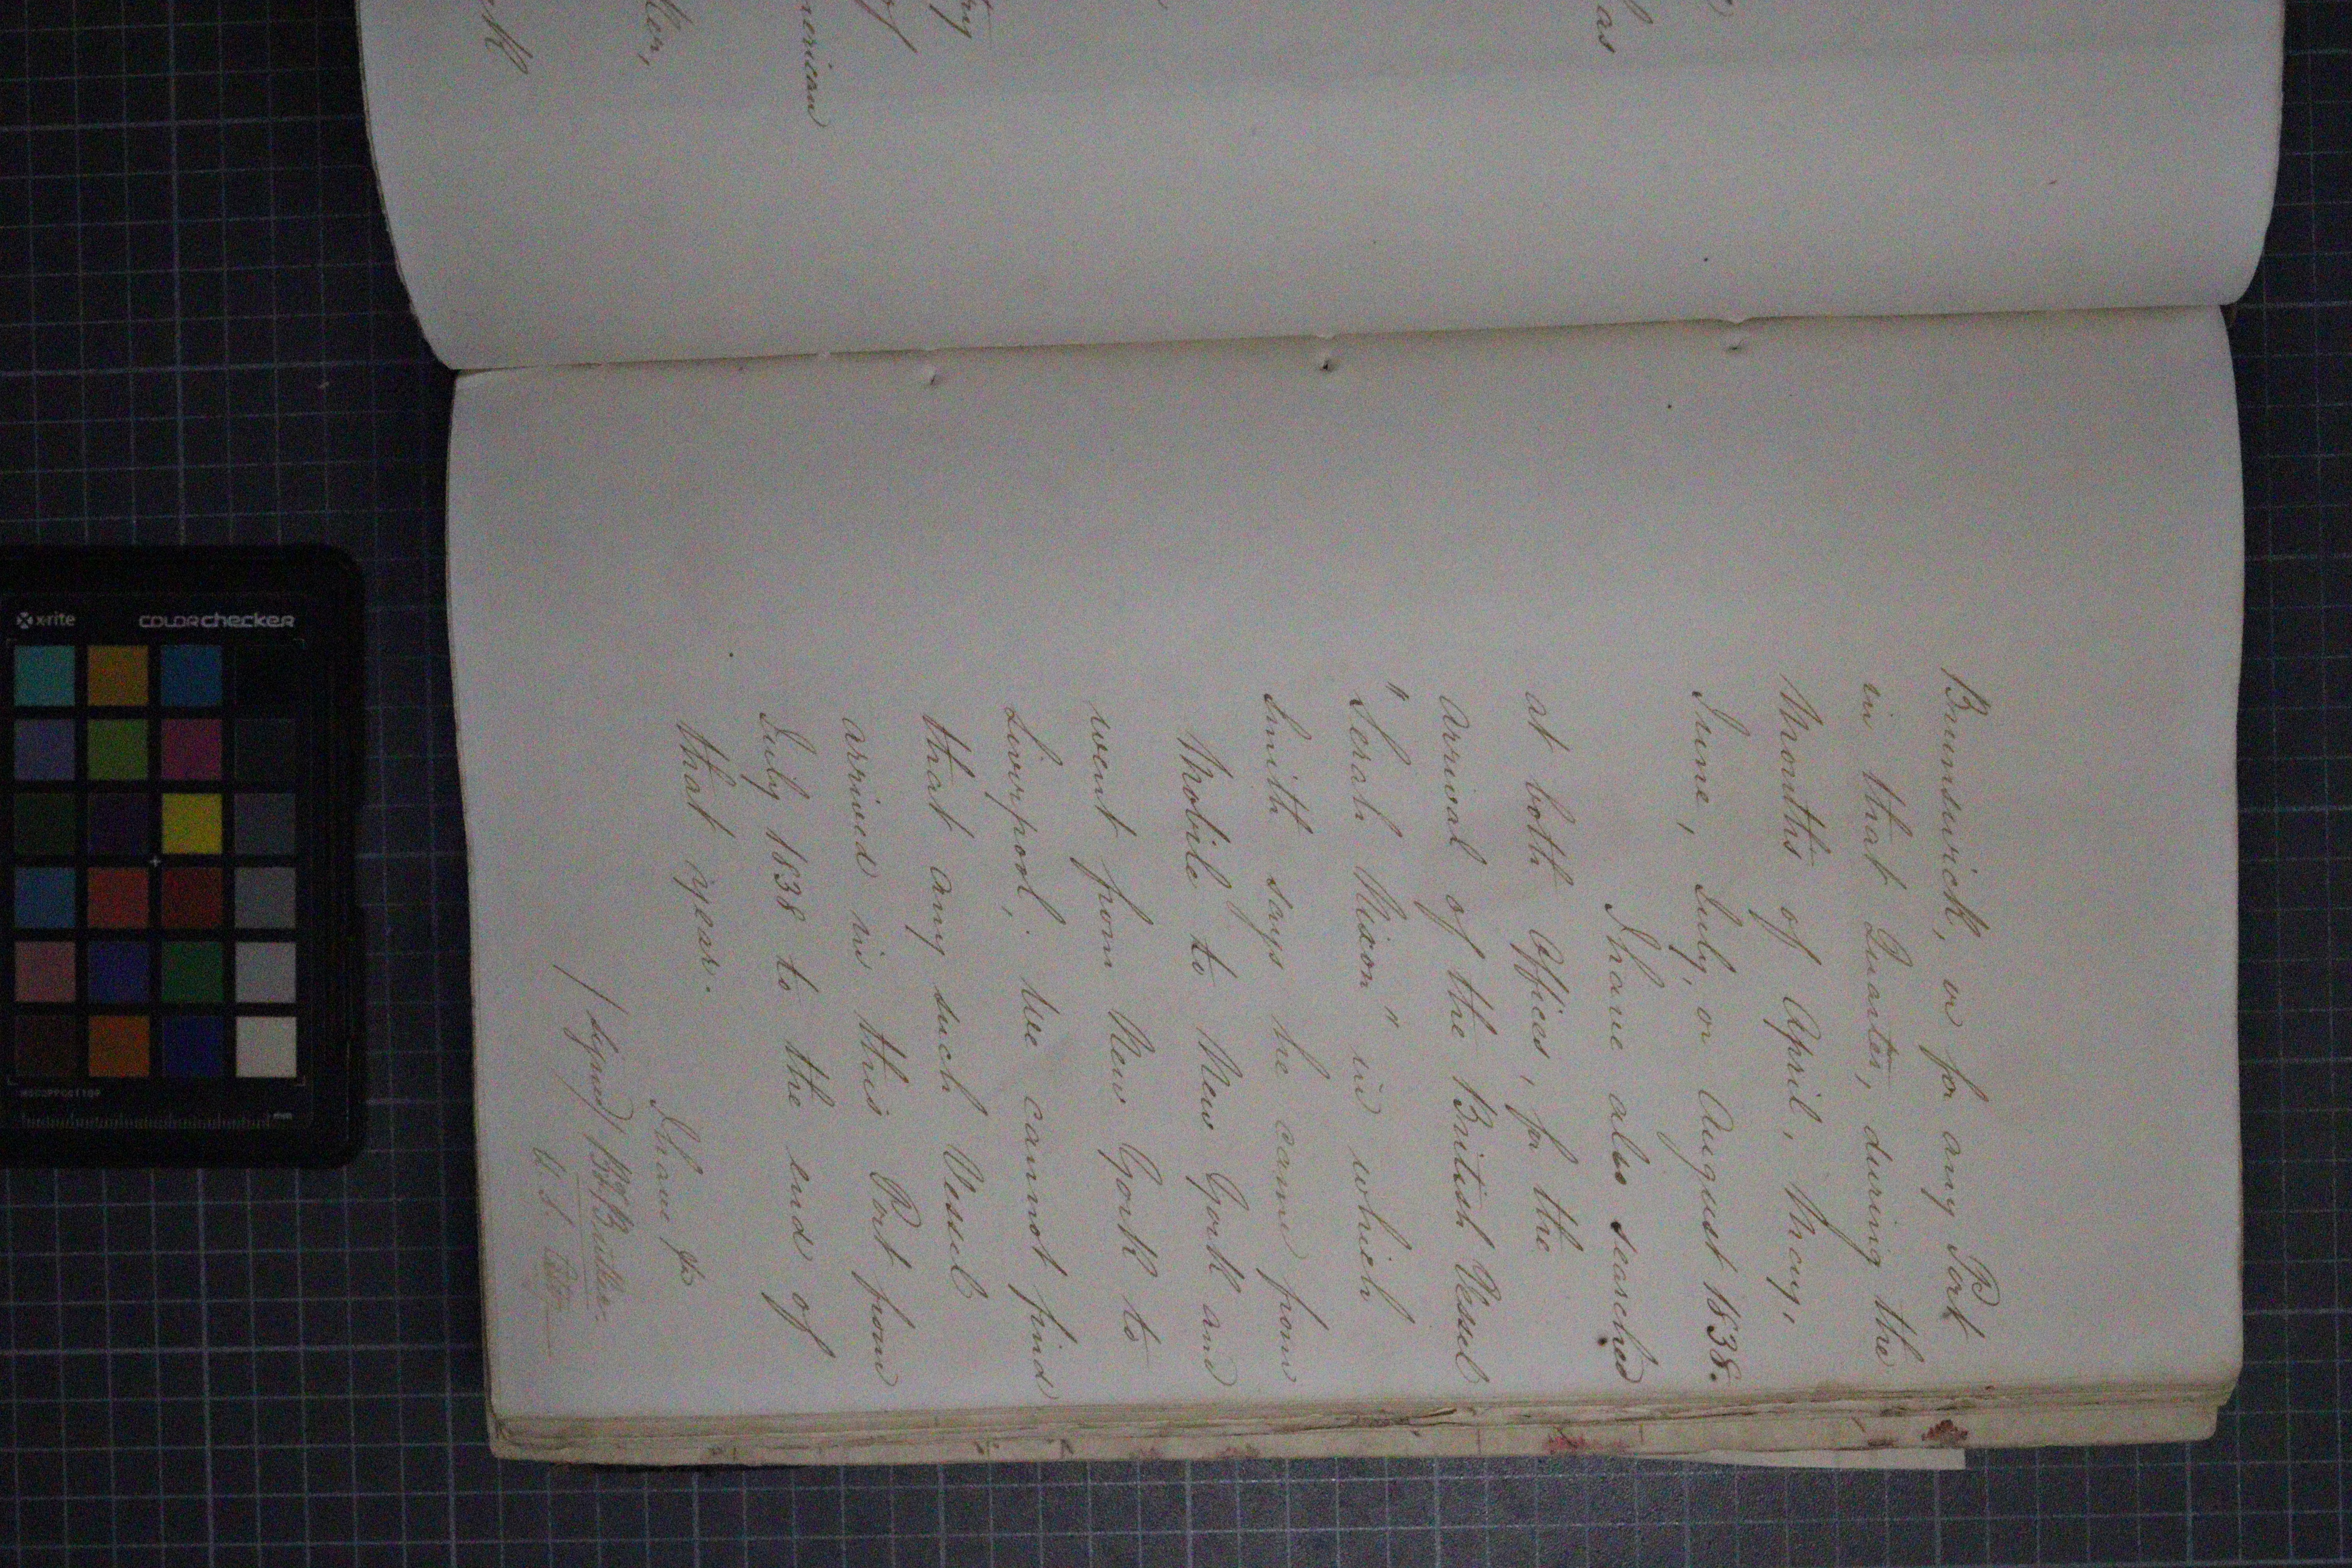 Brunswick, or for any Port
in that Quarter, during the
Months of April, May,
June, July, or August 1838.
I have also searched
at both Offices, for the
arrival of the British Vessel
"Serah Nixon" in which
Smith says he came from
Mobile to New York and
went from New York to
Liverpool; We cannot find
that any such Vessel
arrived in this Port from
July 1838 to the end of
that year.
I have &c
(signed) Butler
U.S.
as
ry
of
merican
ler,
x-rite colorchecker
mm